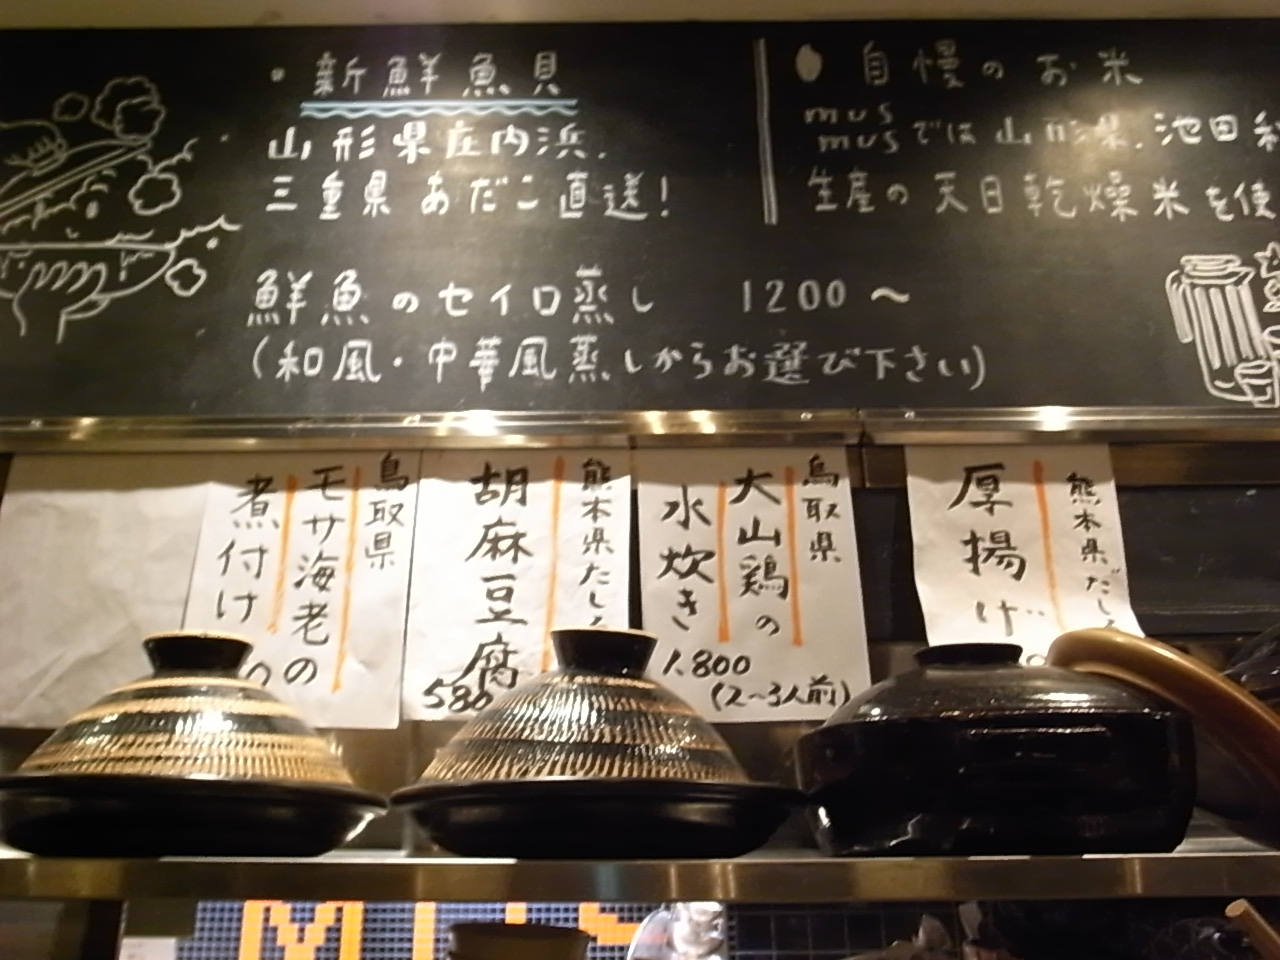 新鮮魚貝
山形県庄内浜.
三重県 あだこ直送!
鮮魚のセイロ蒸し 1200〜
(和風・中華風蒸しからお選び下さい)
自慢のお米
mus
musでは山形県.池田
生産の天日乾燥米を使
鳥取県
モサ海老の
煮付け
熊本県だし
胡麻豆腐
580
鳥取県
大山鶏の
水炊き
1.800
(2〜3人前)
熊本県だし
厚揚げ